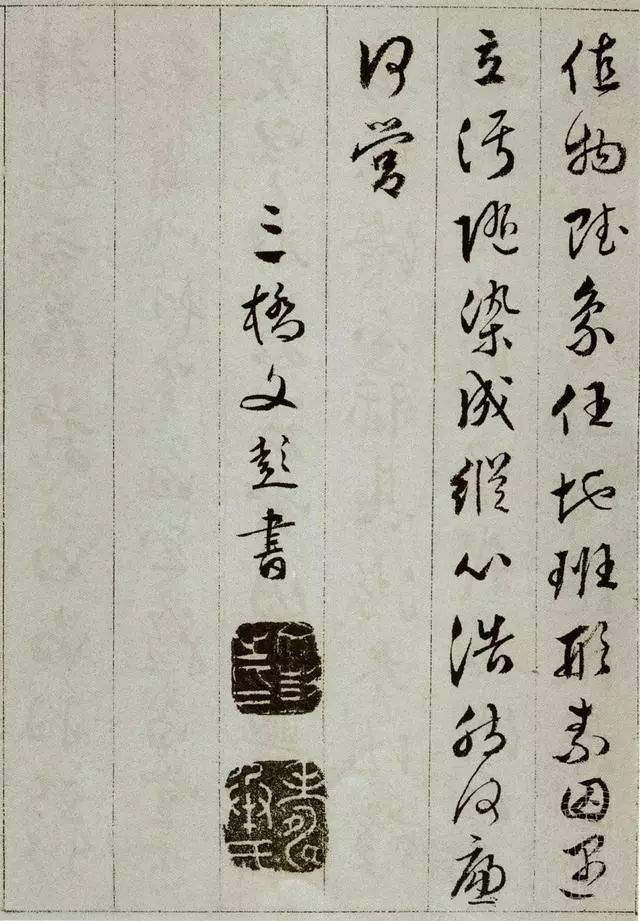 值物賦象任地班形素因遇
立污隨染成縱心浩然何慮
何營
三橋文彭書